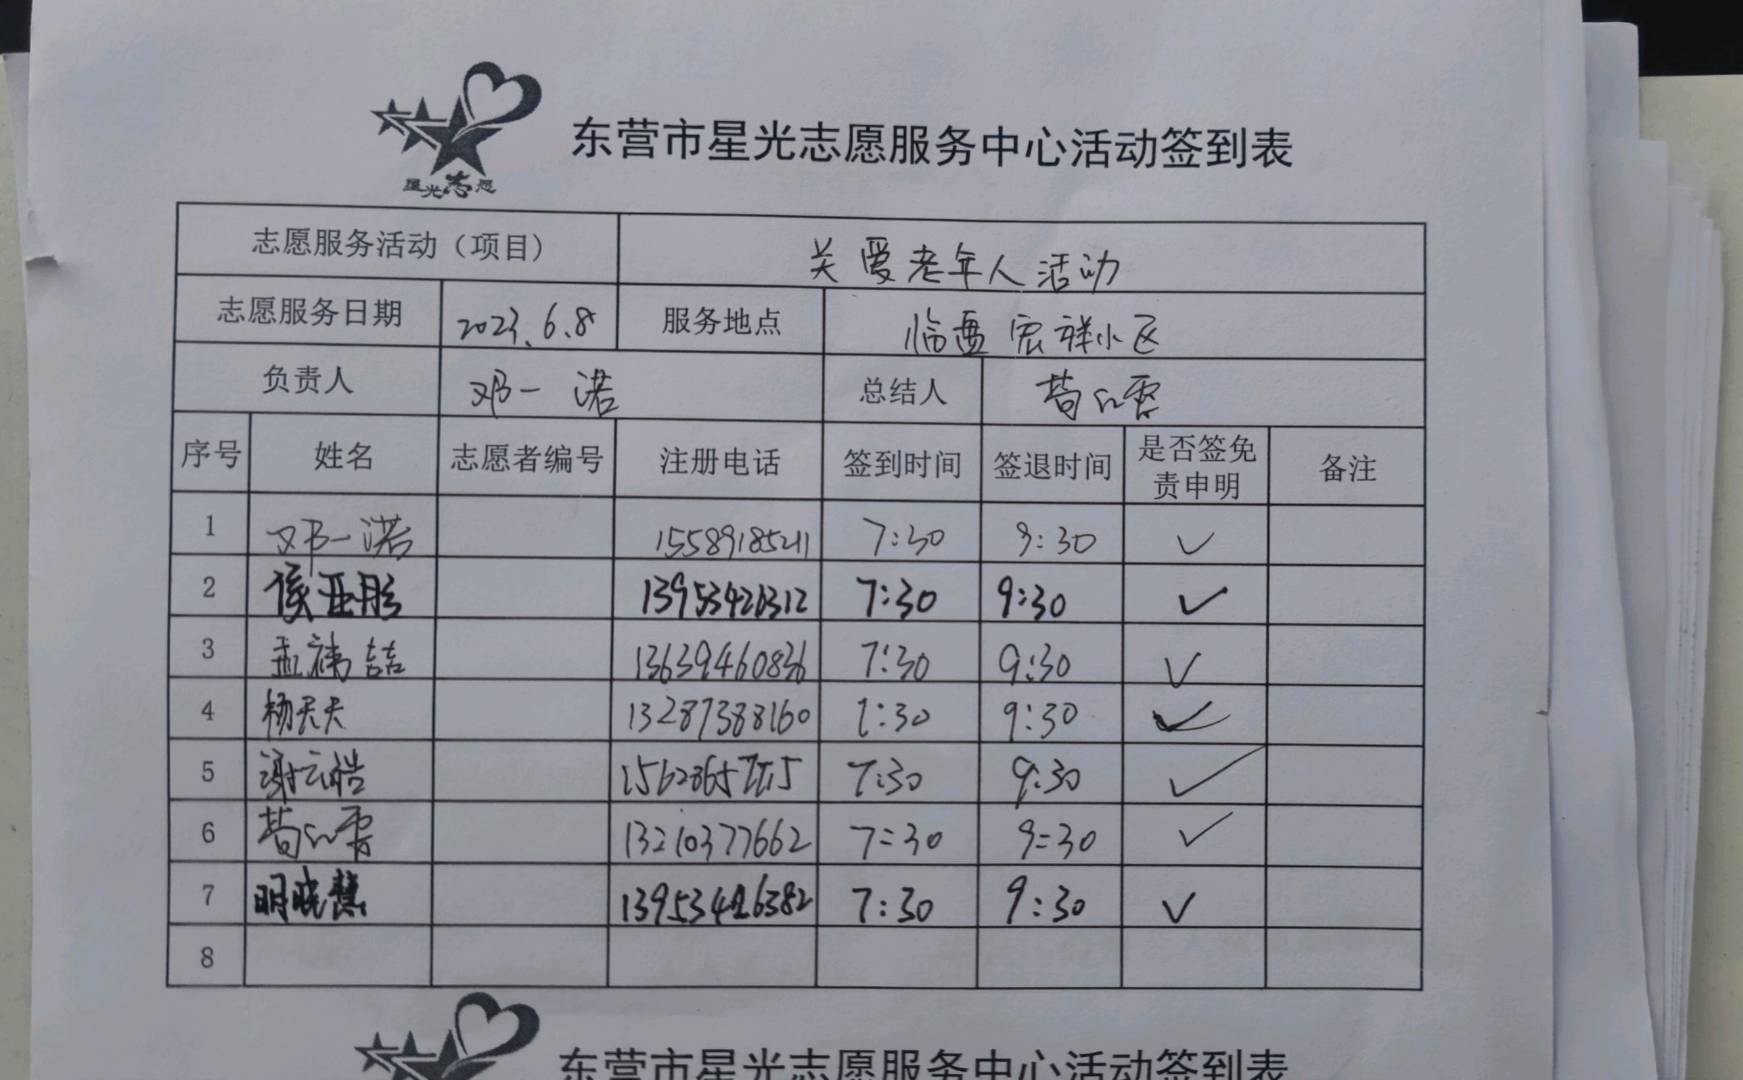 星光志愿
东营市星光志愿服务中心活动签到表
志愿服务活动（项目） 关爱老年人活动
志愿服务日期 2023.6.8 服务地点 临盘宏祥小区
负责人 邓一诺 总结人
序号 姓名 志愿者编号 注册电话 签到时间 签退时间 是否签免责申明 备注
1 邓一诺 15589185211 7:30 9:30 ✓
2 侯亚彤 7:30 9:30 ✓
3 13639460836 7:30 9:30 ✓
4 杨天天 13287388160 7:30 9:30 ✓
5 谢云皓 7:30 9:30 ✓
6 13210377662 7:30 9:30 ✓
7 明晓慧 13953426382 7:30 9:30 ✓
8
东营市星光志愿服务中心活动签到表